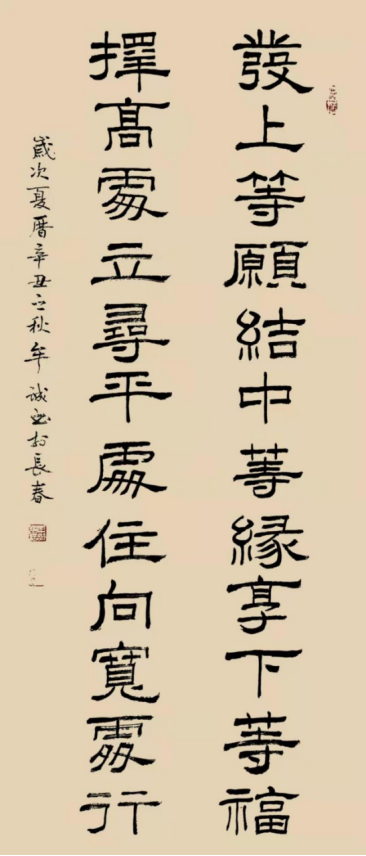 發上等願結中等緣享下等福
擇高處立尋平處住向寬處行
歲次夏曆辛丑之秋牟誠書於長春